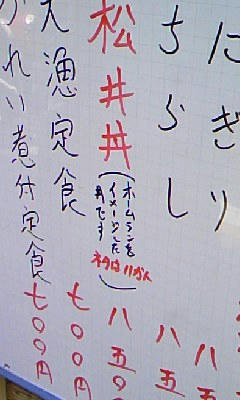 にぎり 八
ちらし 八五
松井丼
(ホームランを
イメージした
丼です
ネタは11かん)
八五〇
大漁定食 七〇〇円
かれい煮付定食 七〇〇円